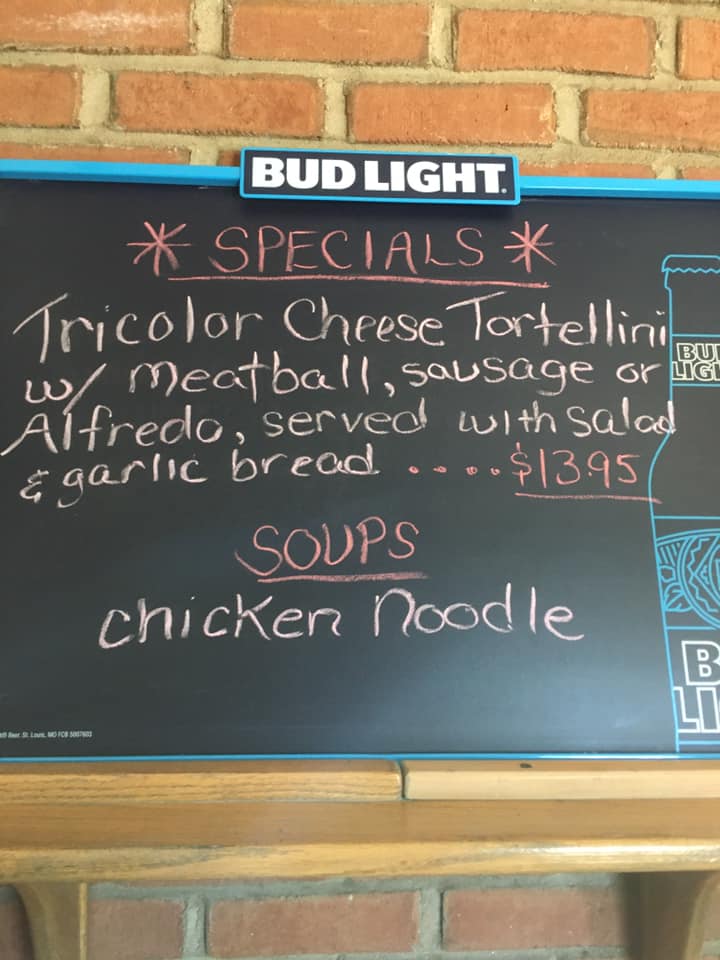 BUD LIGHT.
* SPECIALS *
Tricolor Cheese Tortellini
w/ meatball, sausage or
Alfredo, served with Salad
& garlic bread ..... $13.95
SOUPS
chicken noodle
BU
LIG
B
LI
Beer, St. Louis, MO FCB 5007603